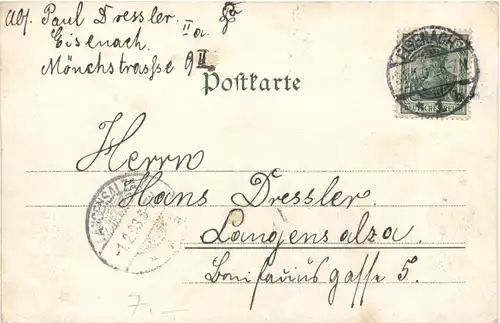 Abs. Paul Dressler. IIa
Eisenach.
Mönchstrasse 9 II
Postkarte
EISENACH
DEUTSCHES REICH
Herrn
Hans Dressler.
LANGENSALZA
Langensalza.
Bonifaciusgasse 5.
7.–